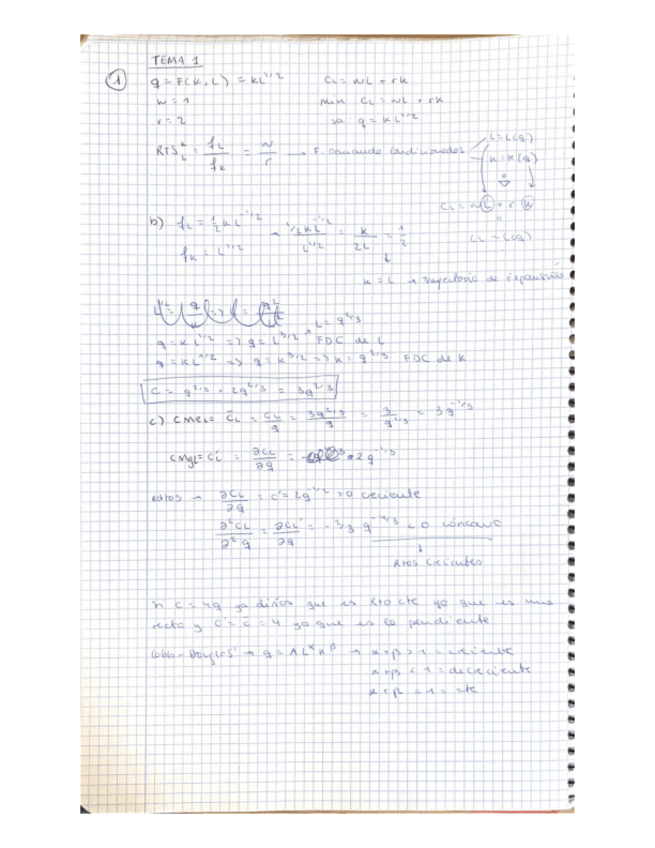 TEMA 1
① q = F(K,L) = KL^1/2    CL = wL + rK
w = 1    min CL = wL + rK
r = 2    sa: q = KL^1/2
RTS = fL / fK = w / r → F. demanda condicionadas
L = L(q)
K = K(q)
CL = wL + r K
CL = C(q)
b) fL = 1/2 KL^-1/2 → 1/2KL^-1/2 / L^1/2 = K / 2L = 1/2
fK = L^1/2
K = L → trayectoria de expansión
L = q^2/3
q = KL^1/2 => q = L^3/2 FDC de L
q = KL^1/2 => q = K^3/2 => K = q^2/3 FDC de K
C = q^2/3 + 2q^2/3 = 3q^2/3
c) CMeL = CL = CL / q = 3q^2/3 / q = 3 / q^1/3 = 3q^-1/3
CMgL = CL' = ∂CL / ∂q = 2q^-1/3
Rdtos → ∂CL / ∂q = C' = 2q^-1/3 > 0 creciente
∂²CL / ∂²q = ∂CL' / ∂q = -2/3 q^-4/3 < 0 cóncava
Rtos crecientes
Si C = 4q ya dirías que es rto cte ya que es una
recta y C' = C = 4 ya que es la pendiente
Cobb-Douglas → q = AL^α K^β → α+β > 1 = creciente
α+β < 1 = decreciente
α+β = 1 = cte